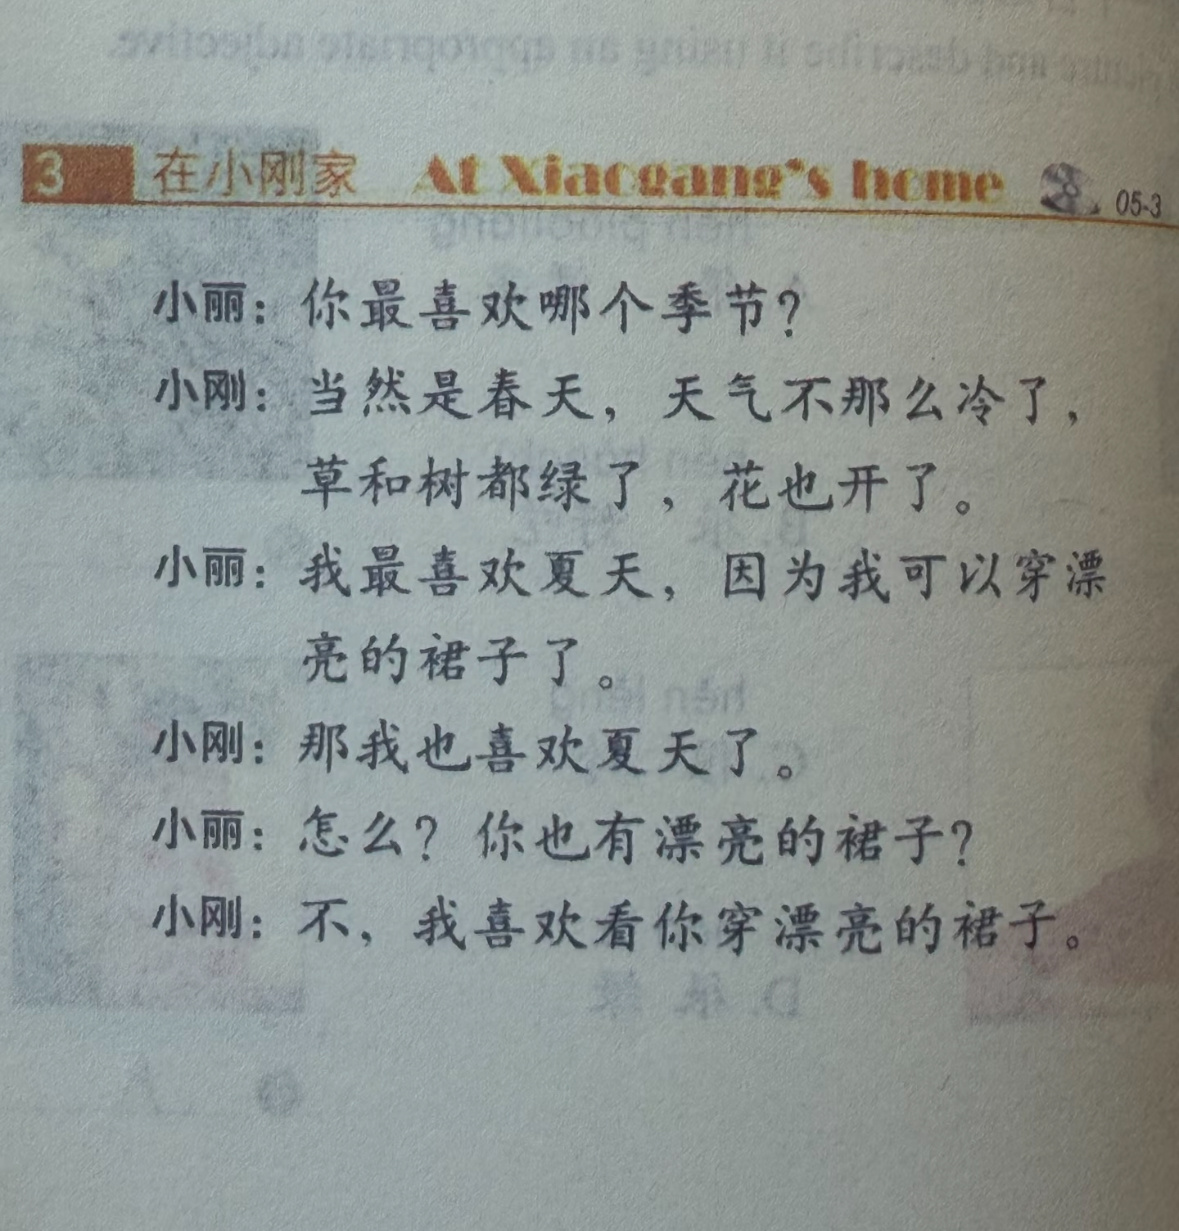 3 在小刚家 At Xiaogang's home 05-3
小丽：你最喜欢哪个季节？
小刚：当然是春天，天气不那么冷了，
草和树都绿了，花也开了。
小丽：我最喜欢夏天，因为我可以穿漂
亮的裙子了。
小刚：那我也喜欢夏天了。
小丽：怎么？你也有漂亮的裙子？
小刚：不，我喜欢看你穿漂亮的裙子。